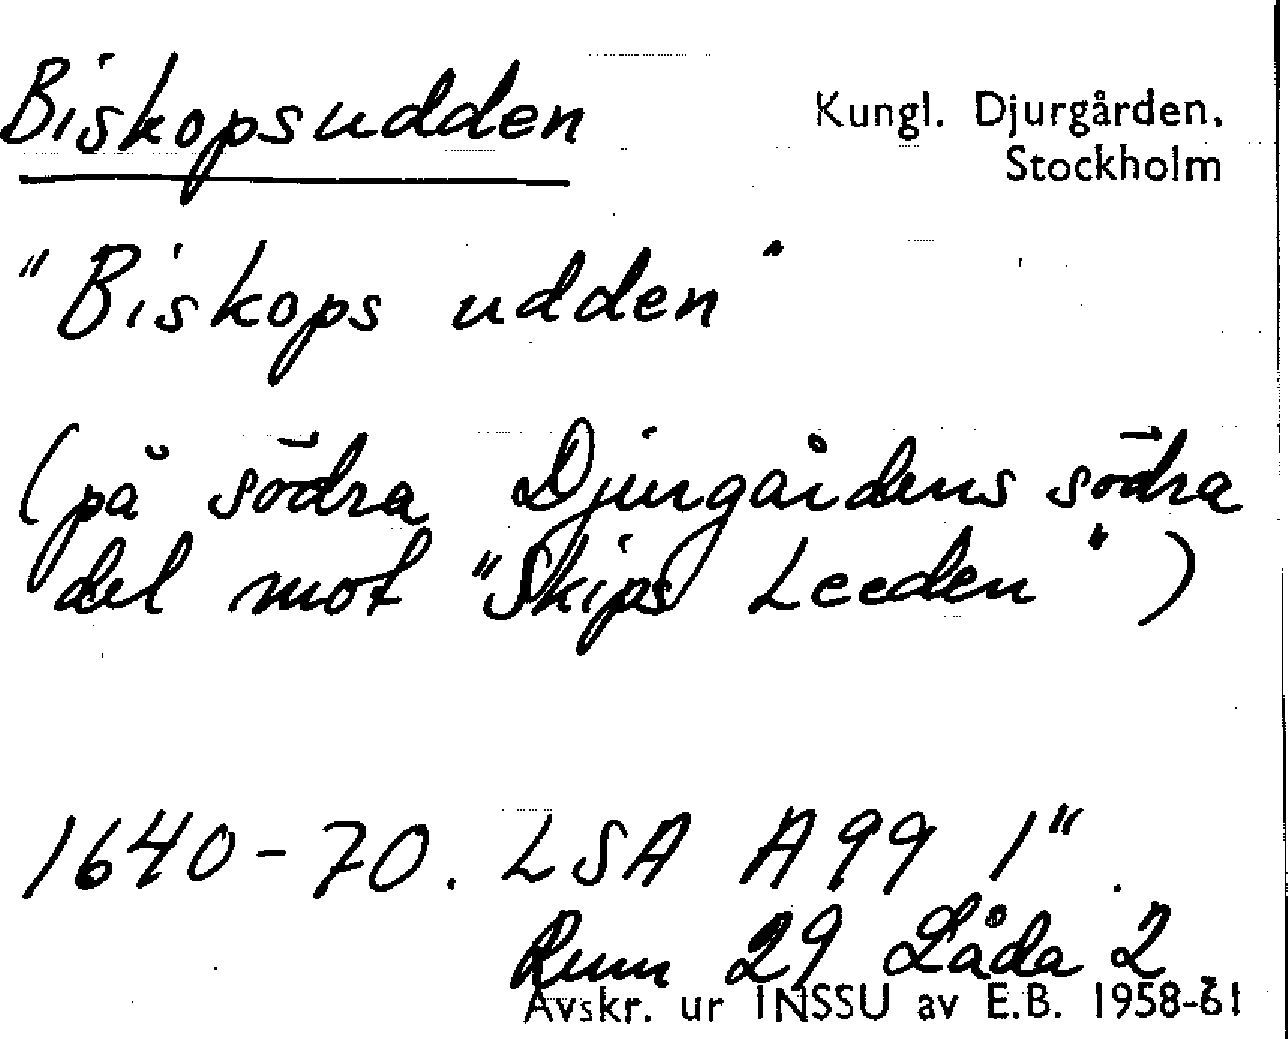 Biskopsudden
Kungl. Djurgården,
Stockholm
"Biskops udden"
(på södra Djurgårdens södra
del mot "Skips Leeden")
1640-70. LSA A 99 1".
Rum 29 Låda 2
Avskr. ur INSSU av E.B. 1958-61